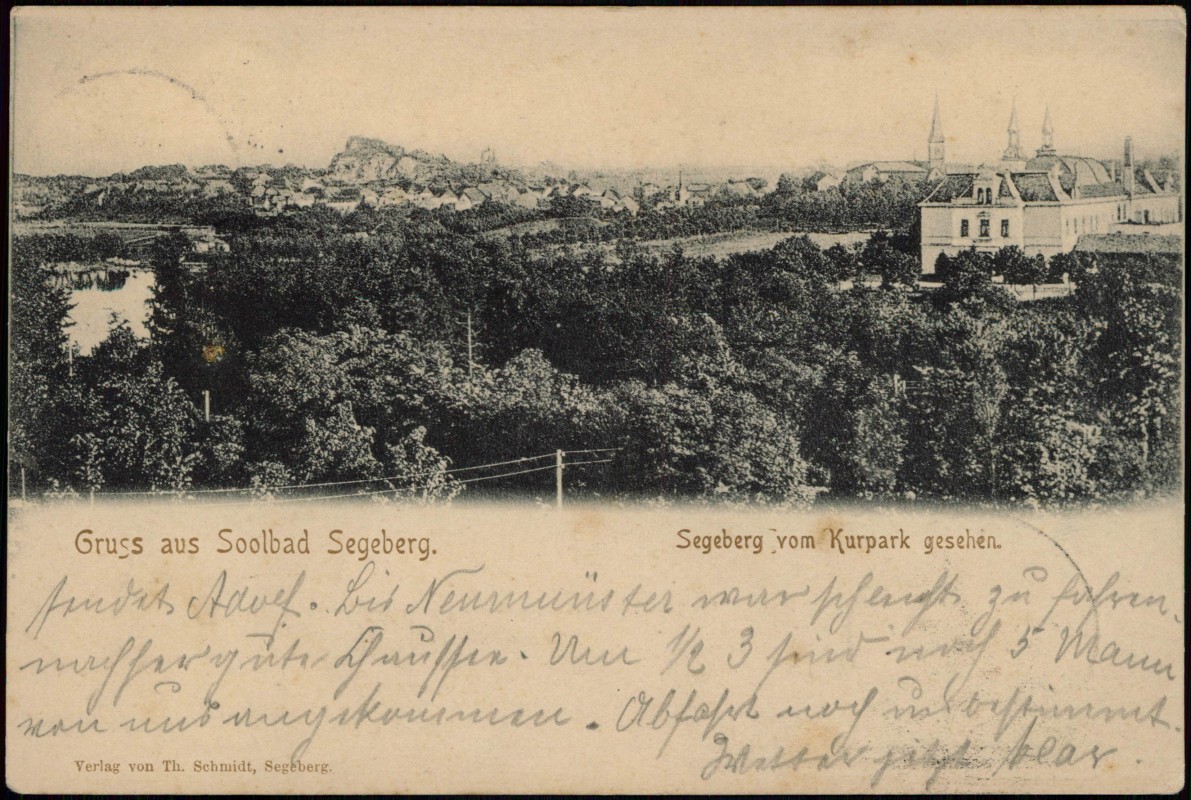 Gruss aus Soolbad Segeberg.
Segeberg vom Kurpark gesehen.
sendet Adolf. Bis Neumünster war schlecht zu fahren,
nachher gute Chaussee. Um 1/2 3 sind noch 5 Mann
von uns angekommen. Abfahrt noch unbestimmt.
Wetter jetzt klar.
Verlag von Th. Schmidt, Segeberg.